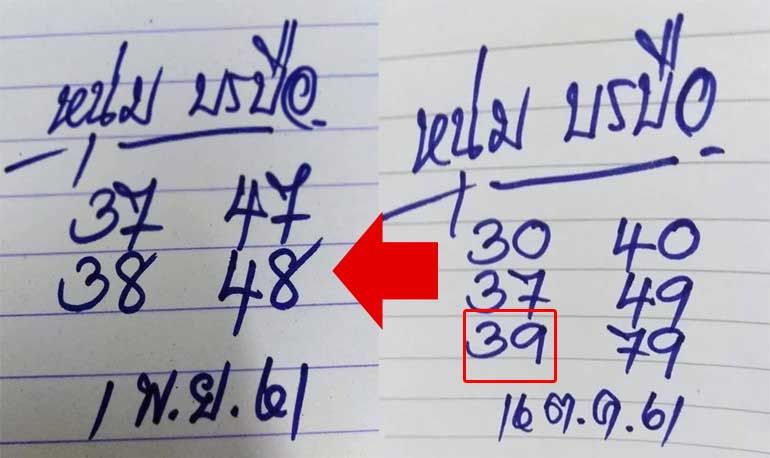 หนุ่ม บรบือ
37 47
38 48
1 พ.ย. 61
หนุ่ม บรบือ
30 40
37 49
39 79
16 ต.ค. 61